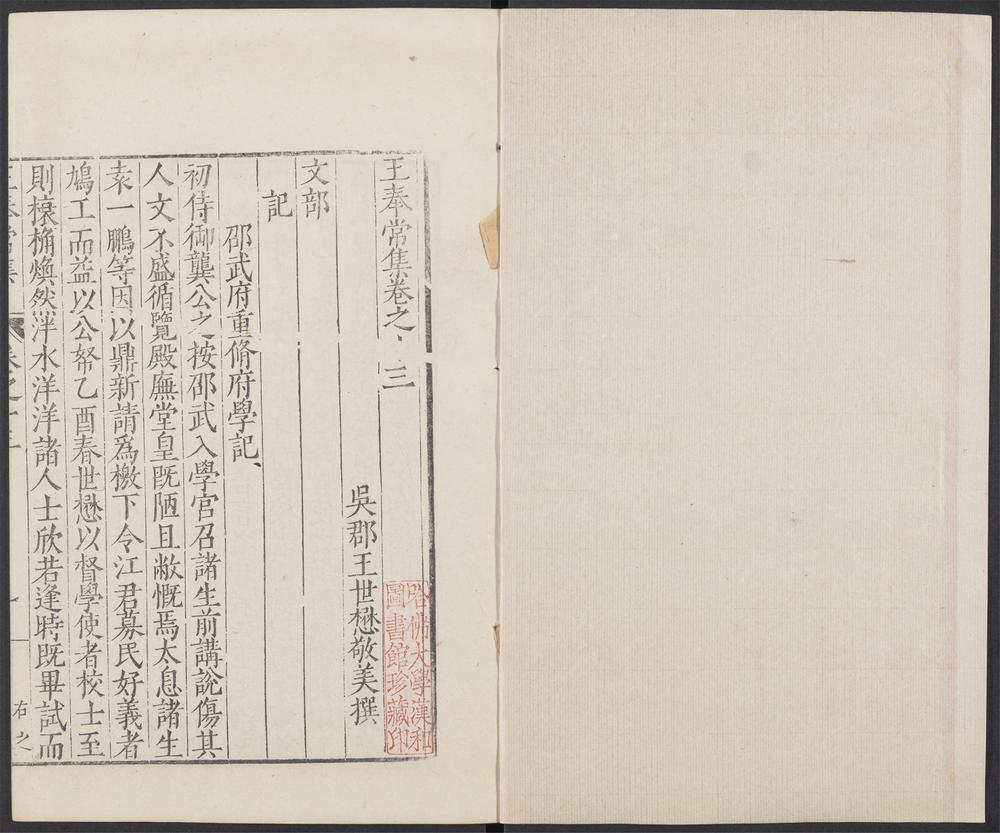 王奉常集卷之十三
吳郡王世懋敬美撰
哈佛大學漢和
圖書館珍藏印
文部
記
邵武府重脩府學記
初侍御龔公之按邵武入學宮召諸生前講說傷其
人文不盛循覽殿廡堂皇既陋且敝慨焉太息諸生
袁一鵬等因以鼎新請爲檄下令江君募民好義者
鳩工而益以公帑乙酉春世懋以督學使者校士至
則榱桷煥然泮水洋洋諸人士欣若逢時既畢試而
王奉常集 卷之十三 一 右之